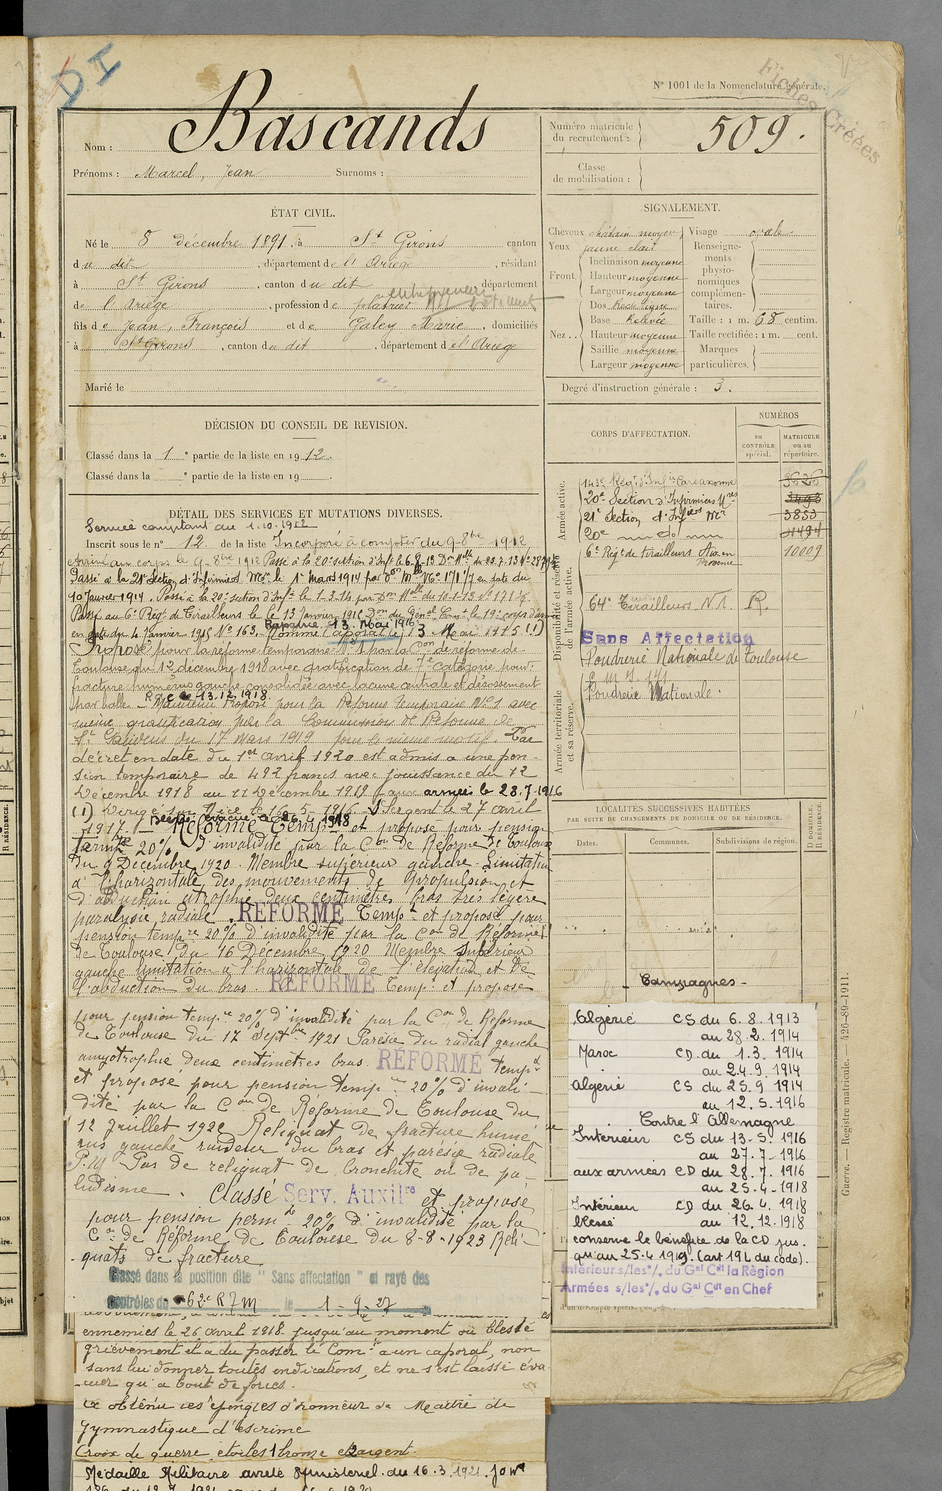 DI
N° 1001 de la Nomenclature générale.
Fiches Créées
Nom : Bascands
Prénoms : Marcel, Jean Surnoms :
Numéro matricule du recrutement : 509.
Classe de mobilisation :
ÉTAT CIVIL.
Né le 8 décembre 1891, à St Girons canton
du dit, département de l'Ariège, résidant
à St Girons, canton du dit département
de l'Ariège, profession de plâtrier
fils de Jean, François et de Galey Marie, domiciliés
à St Girons, canton du dit, département de l'Ariège
Marié le
SIGNALEMENT.
Cheveux châtain moyen
Yeux jaune clair
Front Inclinaison moyenne
Hauteur moyenne
Largeur moyenne
Nez Dos Rectiligne
Base Relevée
Hauteur moyenne
Saillie moyenne
Largeur moyenne
Visage ovale
Renseignements physionomiques complémentaires.
Taille : 1 m. 68 centim.
Taille rectifiée : 1 m. cent.
Marques particulières.
Degré d'instruction générale : 3.
DÉCISION DU CONSEIL DE REVISION.
Classé dans la 1e partie de la liste en 1912.
Classé dans la e partie de la liste en 19
CORPS D'AFFECTATION.
NUMÉROS
AU CONTRÔLE spécial.
MATRICULE ou au répertoire.
Armée active.
143e Régt d'Infie Carcassonne 3626
20e Section d'Infirmiers Mres 3493
21e Section d'Infiers Mre 3853
20e — d° — 01494
6e Régt de Tirailleurs Aix en Provence 10009
Disponibilité et réserve de l'armée active.
64e Tirailleurs N.A. R.
Sans Affectation
Poudrerie Nationale de Toulouse
Poudrerie Nationale.
Armée territoriale et sa réserve.
DÉTAIL DES SERVICES ET MUTATIONS DIVERSES.
Service comptant du 1.10.1912
Inscrit sous le n° 12 de la liste Incorporé à compter du 9-8bre 1912
Arrivé au corps le 9 8bre 1912 Passé à la 20e section d'Infrs le 6.8.13
Passé à la 21e Section d'Infirmiers Mres le 1er Mars 1914 en date du
10 janvier 1914. Passé à la 20e section d'Infrs le 1.3.14
Passé au 6e Régt de Tirailleurs le 13 Janvier 1916 Don du Génal Comt le 19e corps d'armée
en date du 4 Janvier 1916 N° 163. Nommé Caporal le 13 Mai 1915 (1)
Rapatrié 13 Mai 1916
Proposé pour la réforme temporaire N° 1 par la Con de réforme de
Toulouse du 12 décembre 1918 avec gratification de 7e catégorie pour:
fracture humérus gauche consolidée avec lacune centrale et
par balle. — Maintenu Proposé pour la Réforme temporaire N° 1 avec
même gratification par la Commission de Réforme de
St Gaudens du 17 Mars 1919 pour le même motif. Par
décret en date du 1er avril 1920 est admis à une pen-
sion temporaire de 492 francs avec jouissance du 12
Décembre 1918 au 11 Décembre 1919 (aux armées le 28.7.1916
(1) Dirigé sur Nice le 16-5-1916. Sergent le 27 avril
1917. Blessé évacué le 26-4-1918 Réformé Tempre et proposé pour pension
tempre 20% d'invalidité par la Con de Réforme de Toulouse
du 9 Décembre 1920. Membre supérieur gauche - Limitation
à l'horizontale des mouvements de propulsion et
d'abduction atrophie deux centimètres bras très légère
paralysie radiale. RÉFORMÉ Tempt et proposé pour
pension tempre 20% d'invalidité par la Con de Réforme
de Toulouse du 16 Décembre 1920 Membre supérieur
gauche limitation à l'horizontale de l'élévation et de
l'abduction du bras. RÉFORMÉ Tempt et proposé
pour pension tempre 20% d'invalidité par la Con de Réforme
de Toulouse du 17 Septbre 1921 Parésie du radial gauche
amyotrophie deux centimètres bras RÉFORMÉ tempt
et proposé pour pension tempre 20% d'invali-
dité par la Con de Réforme de Toulouse du
12 Juillet 1922 Reliquat de fracture humé-
rus gauche raideur du bras et parésie radiale
P.M Pas de reliquat de bronchite ou de pa-
ludisme. Classé Serv. Auxilre et proposé
pour pension perm 20% d'invalidité par la
Con de Réforme de Toulouse du 8-8-1923 Reli-
quats de fracture
Classé dans la position dite "Sans affectation" et rayé des
contrôles du 62e R T M le 1-9-27
ennemies le 26 avril 1918. jusqu'au moment où blessé
grièvement il a du passer le Comt à un caporal, non
sans lui donner toutes indications, et ne s'est laissé éva-
cuer qu'à bout de forces.
a obtenu les épingles d'honneur de Maître de
Gymnastique d'escrime
Croix de guerre étoiles 1 bronze et argent.
Médaille Militaire arrêté Ministériel du 16.3.1921. J O No
LOCALITÉS SUCCESSIVES HABITÉES
PAR SUITE DE CHANGEMENTS DE DOMICILE OU DE RÉSIDENCE.
Dates. Communes. Subdivisions de région. D DOMICILE. R RÉSIDENCE.
Campagnes.
Algérie CS du 6.8.1913
au 28.2.1914
Maroc CD du 1.3.1914
au 24.9.1914
Algérie CS du 25.9.1914
au 12.5.1916
Contre l'Allemagne
Intérieur CS du 13-5-1916
au 27-7-1916
aux armées CD du 28.7.1916
au 25-4-1918
Intérieur CD du 26.4.1918
blessé au 12.12.1918
conserve le bénéfice de la CD jus-
qu'au 25-4 1919. (art 194 du code).
Intérieurs/les°/. du Gal Cdt la Région
Armées s/les°/. du Gal Cdt en Chef
Guerre. — Registre matricule. — 426-89-1911.